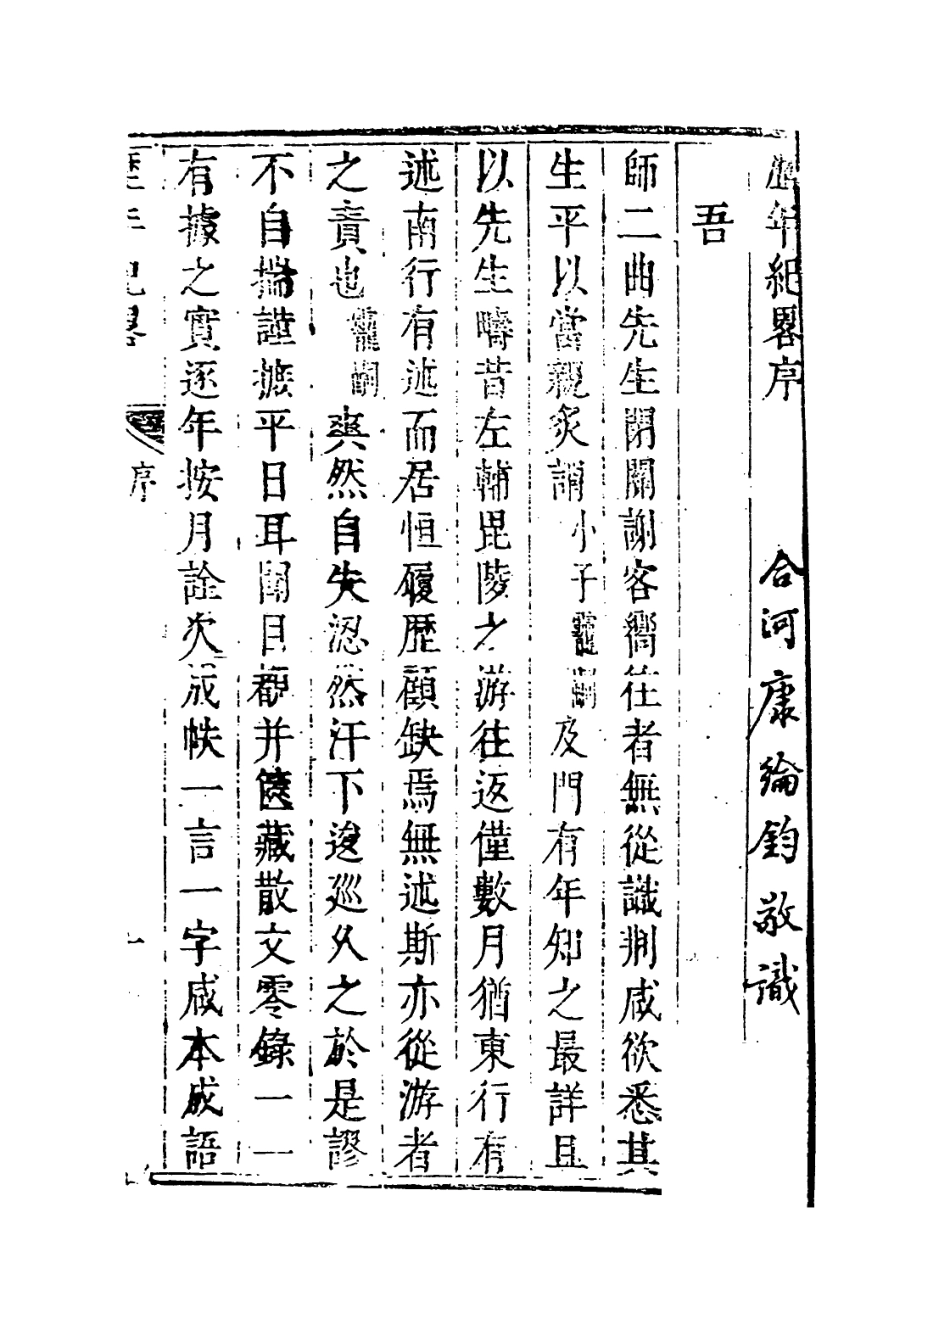 歷年紀畧序
合河康綸鈞敬識
吾
師二曲先生閉關謝客嚮往者無從識荆咸欲悉其
生平以當親炙謂小子龗嗣及門有年知之最詳且
以先生疇昔左輔毘陵之游往返僅數月猶東行有
述南行有述而居恒履歷顧缺焉無述斯亦從游者
之責也龗嗣爽然自失涊然汗下逡廵久之於是謬
不自揣謹摭平日耳聞目覩并篋藏散文零錄一一
有據之實逐年按月詮次成帙一言一字咸本成語
歷年紀畧
序
一